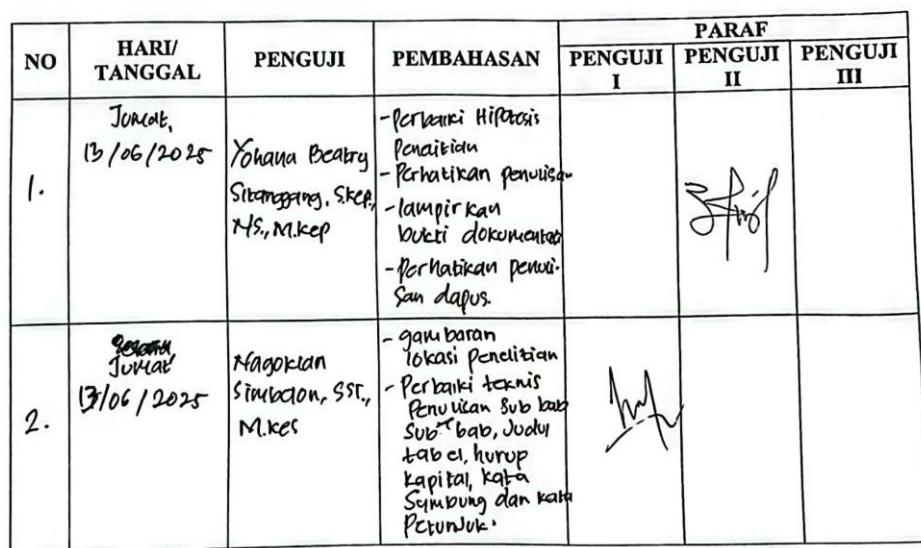 NO HARI/ TANGGAL PENGUJI PEMBAHASAN PARAF
PENGUJI I PENGUJI II PENGUJI III
1.
Jumat,
13/06/2025
Yohana Beatry
Sitanggang, S.Kep.,
NS., M.Kep
-Perbaiki Hipotesis
Penelitian
-Perhatikan penulisan
-lampirkan
bukti dokumentasi
-Perhatikan penuli-
san dapus.
2.
Jumat
13/06/2025
Nagoklan
Simbolon, SST.,
M.Kes
- gambaran
lokasi penelitian
- Perbaiki teknis
Penulisan Sub bab
Sub-bab, Judul
tabel, hurup
kapital, kata
Sambung dan kata
Petunjuk.